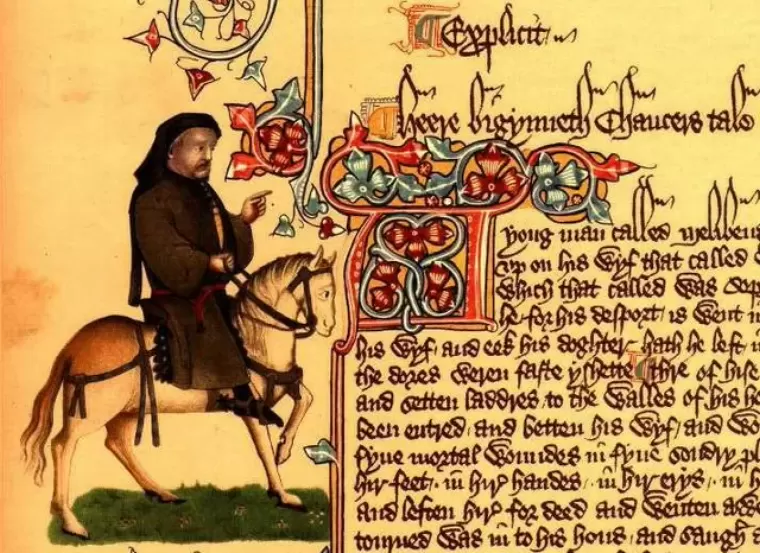 Explicit
Heere bigynneth Chaucers tale
A yong man called melibeu
vp on his wyf that called
which that called was Sop
he for his desport is went in
his wyf and eek his doghter hath he left in
the dores weren faste yshette Thre of hise
and setten laddres to the walles of his
been entred and betten his wyf and wo
fyue mortal woundes in fyue sondry pl
hir feet in hir handes in hir erys in h
and leften hir for deed and wenten
tourned was in to his hous and saugh a